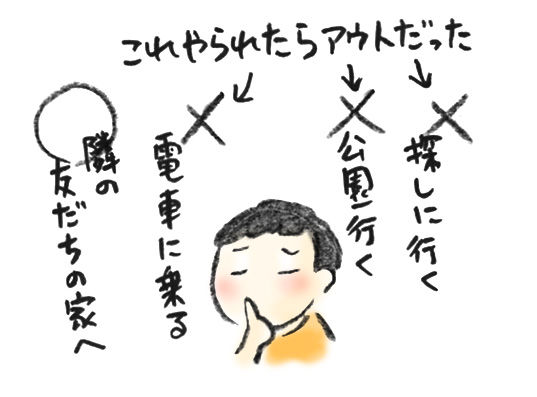 これやられたらアウトだった
探しに行く
公園行く
電車に乗る
隣の
友だちの家へ